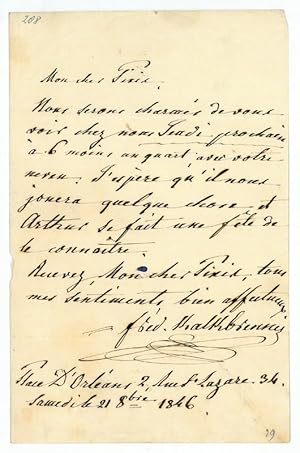 208
Mon cher Pixis.
Nous serons charmés de vous
voir chez nous Jeudi prochain
à 6 moins un quart, avec votre
neveu. J'espère qu'il nous
jouera quelque chose, et
Arthur se fait une fête de
le connaître.
Recevez, Mon cher Pixis, tous
mes sentiments bien affectueux
fréd. Kalkbrenner
Place D'Orléans 2, Rue St Lazare. 34.
Samedi le 21 8bre 1846.
29